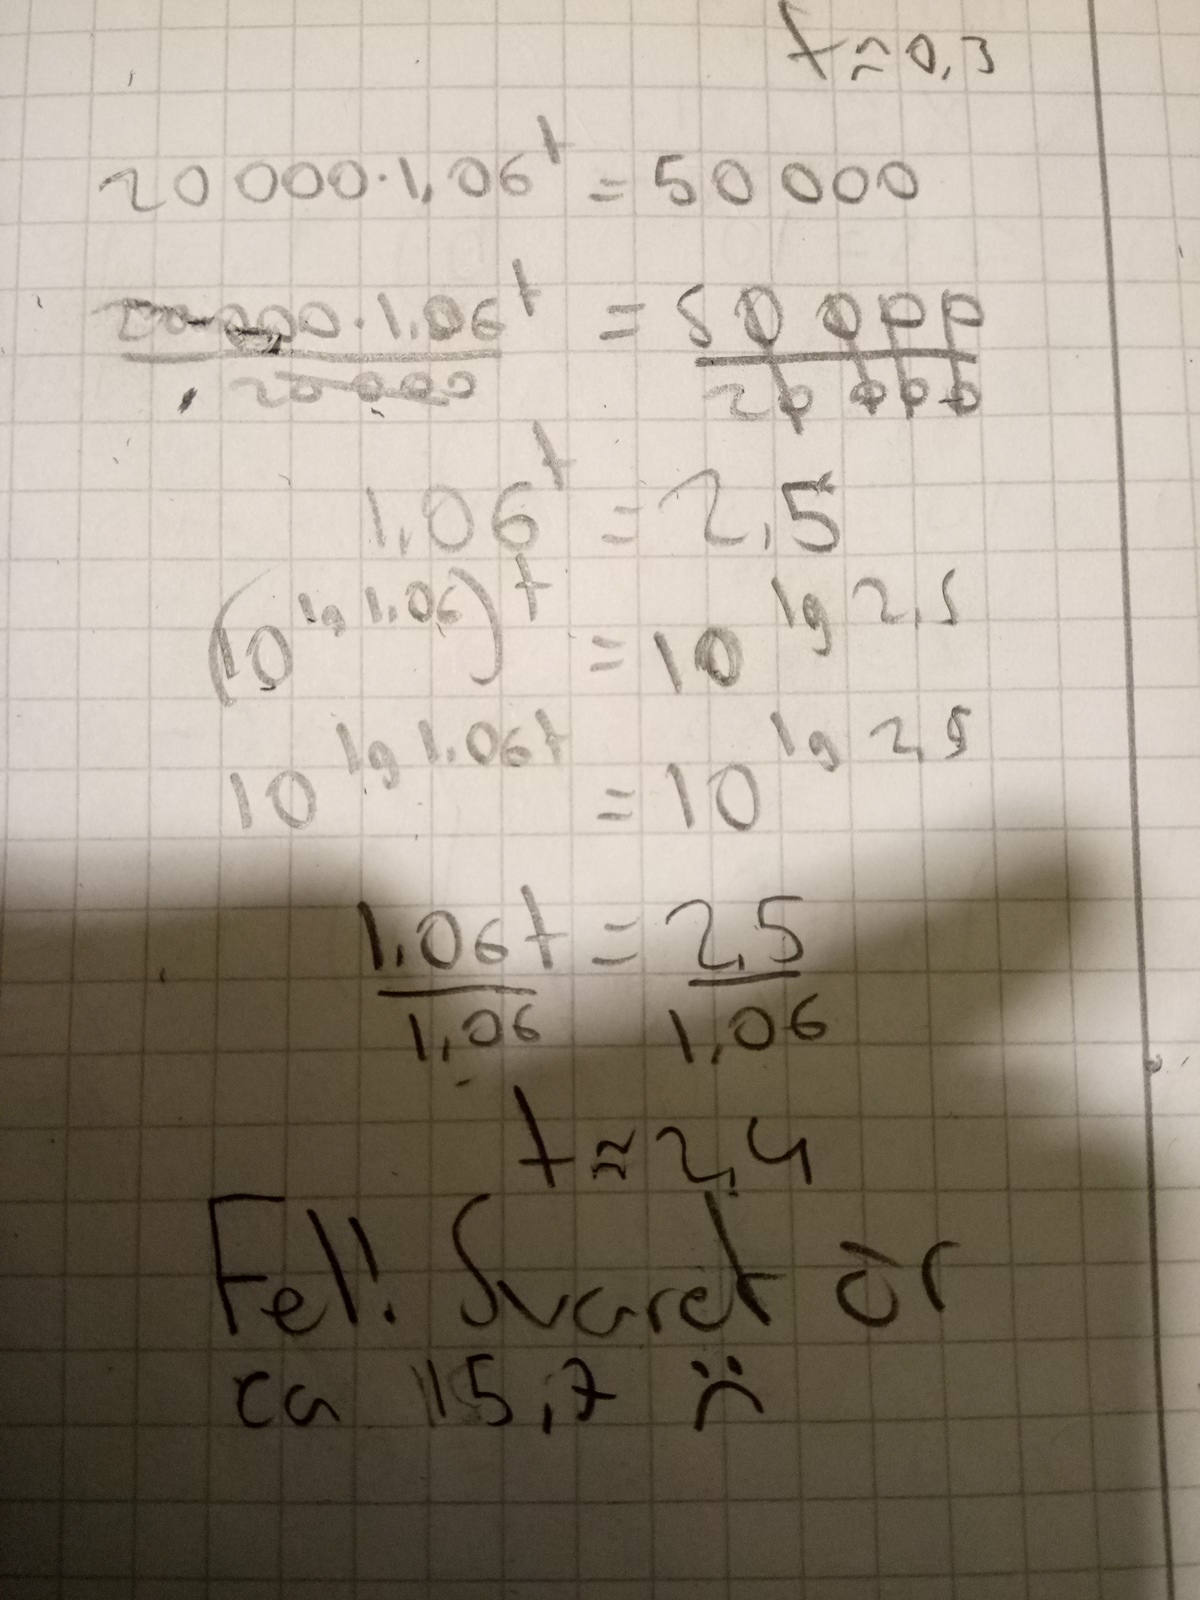 t ≈ 0,3
20 000 · 1,06^t = 50 000
20 000 · 1.06^t / 20 000 = 50 000 / 20 000
1,06^t = 2,5
(10^lg 1.06)^t = 10^lg 2,5
10^lg 1.06t = 10^lg 2,5
1.06t / 1,06 = 2,5 / 1,06
t ≈ 2,4
Fel! Svaret är
ca 15,7 :(